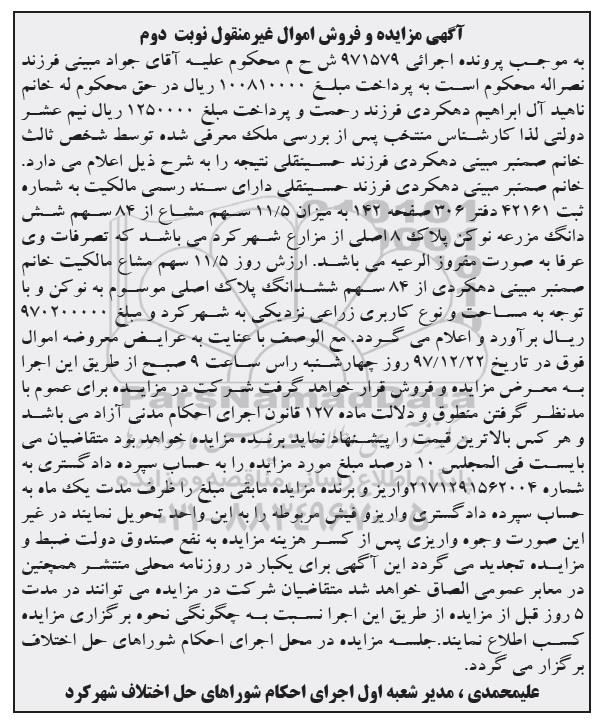 آگهی مزایده و فروش اموال غیرمنقول نوبت دوم
به موجب پرونده اجرائی ۹۷۱۵۷۹ ش ح م محکوم علیه آقای جواد مبینی فرزند
نصراله محکوم است به پرداخت مبلغ ۱۰۰۸۱۰۰۰۰ ریال در حق محکوم له خانم
ناهید آل ابراهیم دهکردی فرزند رحمت و پرداخت مبلغ ۱۲۵۰۰۰۰ ریال نیم عشر
دولتی لذا کارشناس منتخب پس از بررسی ملک معرفی شده توسط شخص ثالث
خانم صمنبر مبینی دهکردی فرزند حسینقلی نتیجه را به شرح ذیل اعلام می دارد.
خانم صمنبر مبینی دهکردی فرزند حسینقلی دارای سند رسمی مالکیت به شماره
ثبت ۴۲۱۶۱ دفتر ۳۰۶ صفحه ۱۴۲ به میزان ۱۱/۵ سهم مشاع از ۸۴ سهم شش
دانگ مزرعه نوکن پلاک ۸ اصلی از مزارع شهرکرد می باشد که تصرفات وی
عرفا به صورت مفروز الرعیه می باشد. ارزش روز ۱۱/۵ سهم مشاع مالکیت خانم
صمنبر مبینی دهکردی از ۸۴ سهم ششدانگ پلاک اصلی موسوم به نوکن و با
توجه به مساحت و نوع کاربری زراعی نزدیکی به شهرکرد و مبلغ ۹۷۰۲۰۰۰۰۰
ریال برآورد و اعلام می گردد. مع الوصف با عنایت به عرایض معروضه اموال
فوق در تاریخ ۹۷/۱۲/۲۲ روز چهارشنبه راس ساعت ۹ صبح از طریق این اجرا
به معرض مزایده و فروش قرار خواهد گرفت شرکت در مزایده برای عموم با
مدنظر گرفتن منطوق و دلالت ماده ۱۲۷ قانون اجرای احکام مدنی آزاد می باشد
و هر کس بالاترین قیمت را پیشنهاد نماید برنده مزایده خواهد بود متقاضیان می
بایست فی المجلس ۱۰ درصد مبلغ مورد مزایده را به حساب سپرده دادگستری به
شماره ۲۱۷۱۲۹۱۵۶۲۰۰۴ واریز و برنده مزایده مابقی مبلغ را ظرف مدت یک ماه به
حساب سپرده دادگستری واریز و فیش مربوطه را به این واحد تحویل نمایند در غیر
این صورت وجوه واریزی پس از کسر هزینه مزایده به نفع صندوق دولت ضبط و
مزایده تجدید می گردد این آگهی برای یکبار در روزنامه محلی منتشر همچنین
در معابر عمومی الصاق خواهد شد متقاضیان شرکت در مزایده می توانند در مدت
۵ روز قبل از مزایده از طریق این اجرا نسبت به چگونگی نحوه برگزاری مزایده
کسب اطلاع نمایند.جلسه مزایده در محل اجرای احکام شوراهای حل اختلاف
برگزار می گردد.
علیمحمدی ، مدیر شعبه اول اجرای احکام شوراهای حل اختلاف شهرکرد
ParsNamadData